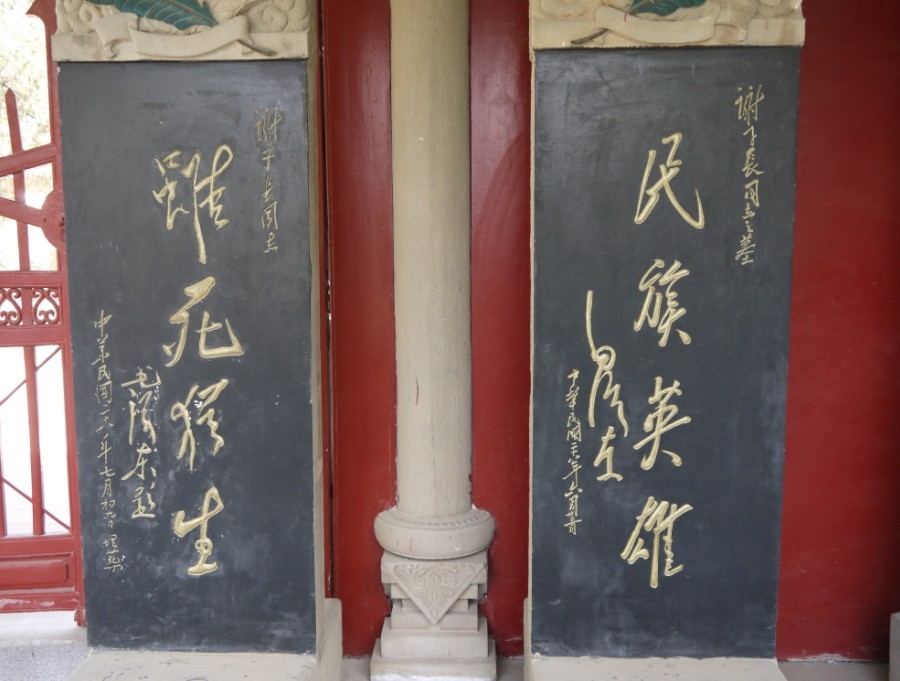 谢子长同志之墓
民族英雄
毛泽东
中华民国二十八年六月
谢子长同志
虽死犹生
毛泽东题
中华民国二十八年七月初九日 埋葬